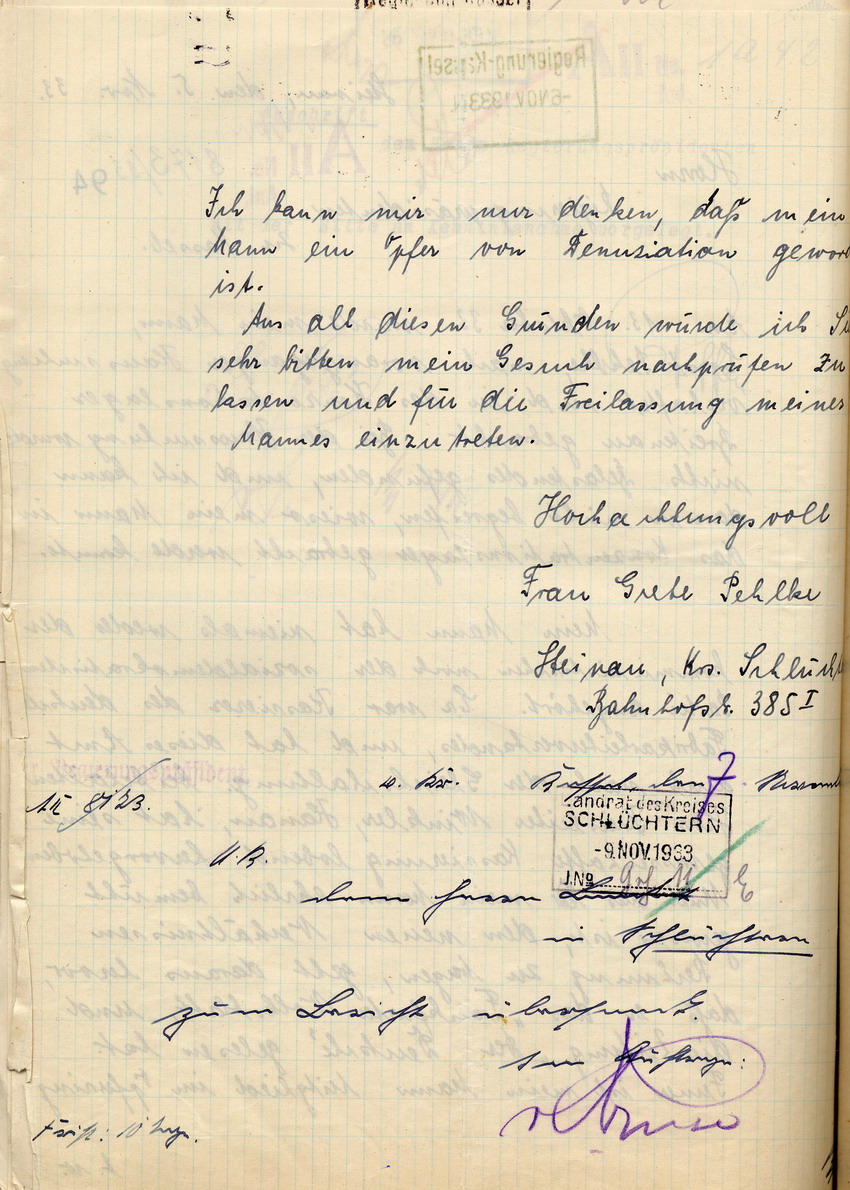 Ich kann mir nur denken, daß mein
Mann ein Opfer von Denuziation gewor
ist.
Aus all diesen Gründen würde ich Si
sehr bitten mein Gesuch nachprüfen zu
lassen und für die Freilassung meines
Mannes einzutreten.
Hochachtungsvoll
Frau Grete Pehlke
Steinau, Krs. Schlücht
Bahnhofst. 385 I
Kassel, den 7 Novemb
Landrat des Kreises
SCHLÜCHTERN
-9. NOV. 1933
J.No
U.R.
dem Herrn Landrat
in Schlüchtern
zum Bericht übersandt.
Im Auftrage:
Frist: 10 Tage.